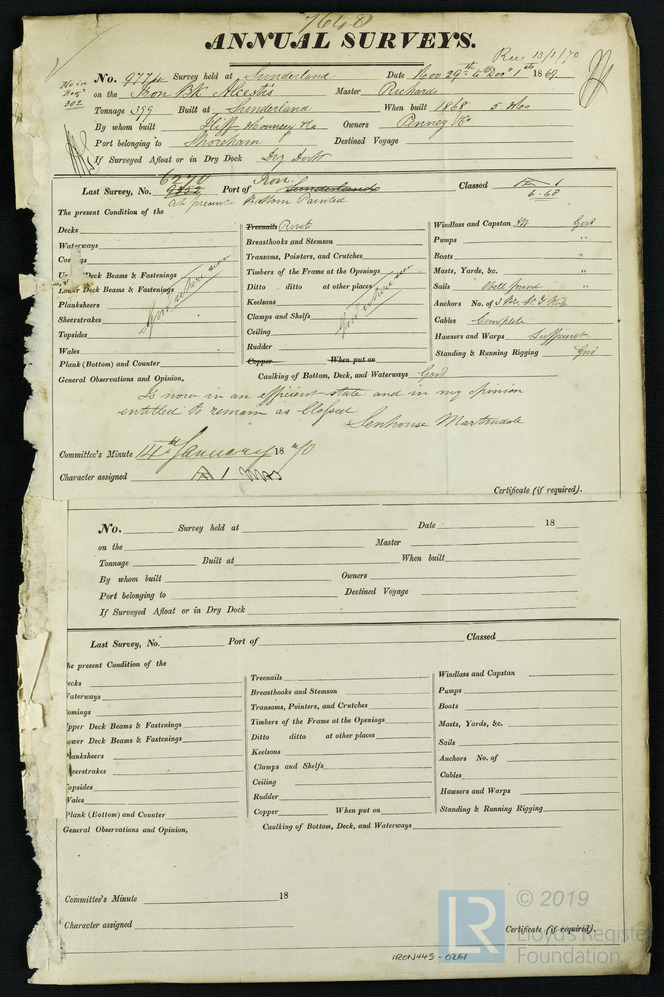 7640
ANNUAL SURVEYS.
Rec 13/1/70
No in Reg 302
No. 9774 Survey held at Sunderland Date Nov 29th to Decr 1st 1869
on the Iron Bk Alcestis Master Richards
Tonnage 399 Built at Sunderland When built 1868 5 Mo
By whom built Iliff Mounsey & Co Owners Penney & Co
Port belonging to Shoreham Destined Voyage
If Surveyed Afloat or in Dry Dock Dry Dock
6270 Iron
Last Survey, No. Port of Sunderland Classed A 1
6-68
at present Bottom Painted
The present Condition of the
Decks
Waterways
Upper Deck Beams & Fastenings
Lower Deck Beams & Fastenings
Planksheers
Sheerstrakes
Topsides
Wales
Plank (Bottom) and Counter
Good where seen
Treenails Rivets
Breasthooks and Stemson
Transoms, Pointers, and Crutches
Timbers of the Frame at the Openings
Ditto ditto at other places
Keelsons
Clamps and Shelfs
Ceiling
Rudder
Copper When put on
Good where seen
Windlass and Capstan Good
Pumps "
Boats "
Masts, Yards, &c. "
Sails Well found "
Anchors No. of 3
Cables Complete
Hawsers and Warps Sufficient
Standing & Running Rigging Good
General Observations and Opinion, Caulking of Bottom, Deck, and Waterways Good
Is now in an efficient state and in my opinion
entitled to remain as Classed
Senhouse Martindale
Committee's Minute 14th January 1870
Character assigned A 1
Certificate (if required).
No. Survey held at Date 18
on the Master
Tonnage Built at When built
By whom built Owners
Port belonging to Destined Voyage
If Surveyed Afloat or in Dry Dock
Last Survey, No. Port of Classed
he present Condition of the
ecks
Waterways
omings
pper Deck Beams & Fastenings
ower Deck Beams & Fastenings
lanksheers
heerstrakes
opsides
Wales
Plank (Bottom) and Counter
Treenails
Breasthooks and Stemson
Transoms, Pointers, and Crutches
Timbers of the Frame at the Openings
Ditto ditto at other places
Keelsons
Clamps and Shelfs
Ceiling
Rudder
Copper When put on
Windlass and Capstan
Pumps
Boats
Masts, Yards, &c.
Sails
Anchors No. of
Cables
Hawsers and Warps
Standing & Running Rigging
General Observations and Opinion, Caulking of Bottom, Deck, and Waterways
Committee's Minute 18
Character assigned
Certificate (if required).
IRON445-0261
LR
© 2019
Lloyd's Register
Foundation.